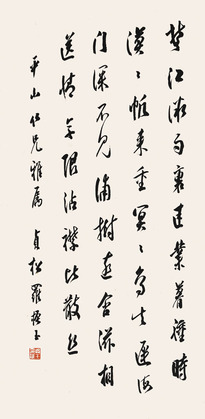 楚江微雨裏建業暮鐘時
漠漠帆來重冥冥鳥去遲海
門深不見浦樹遠含滋相
送情無限沾襟比散絲
平山仁兄雅屬 貞松羅振玉